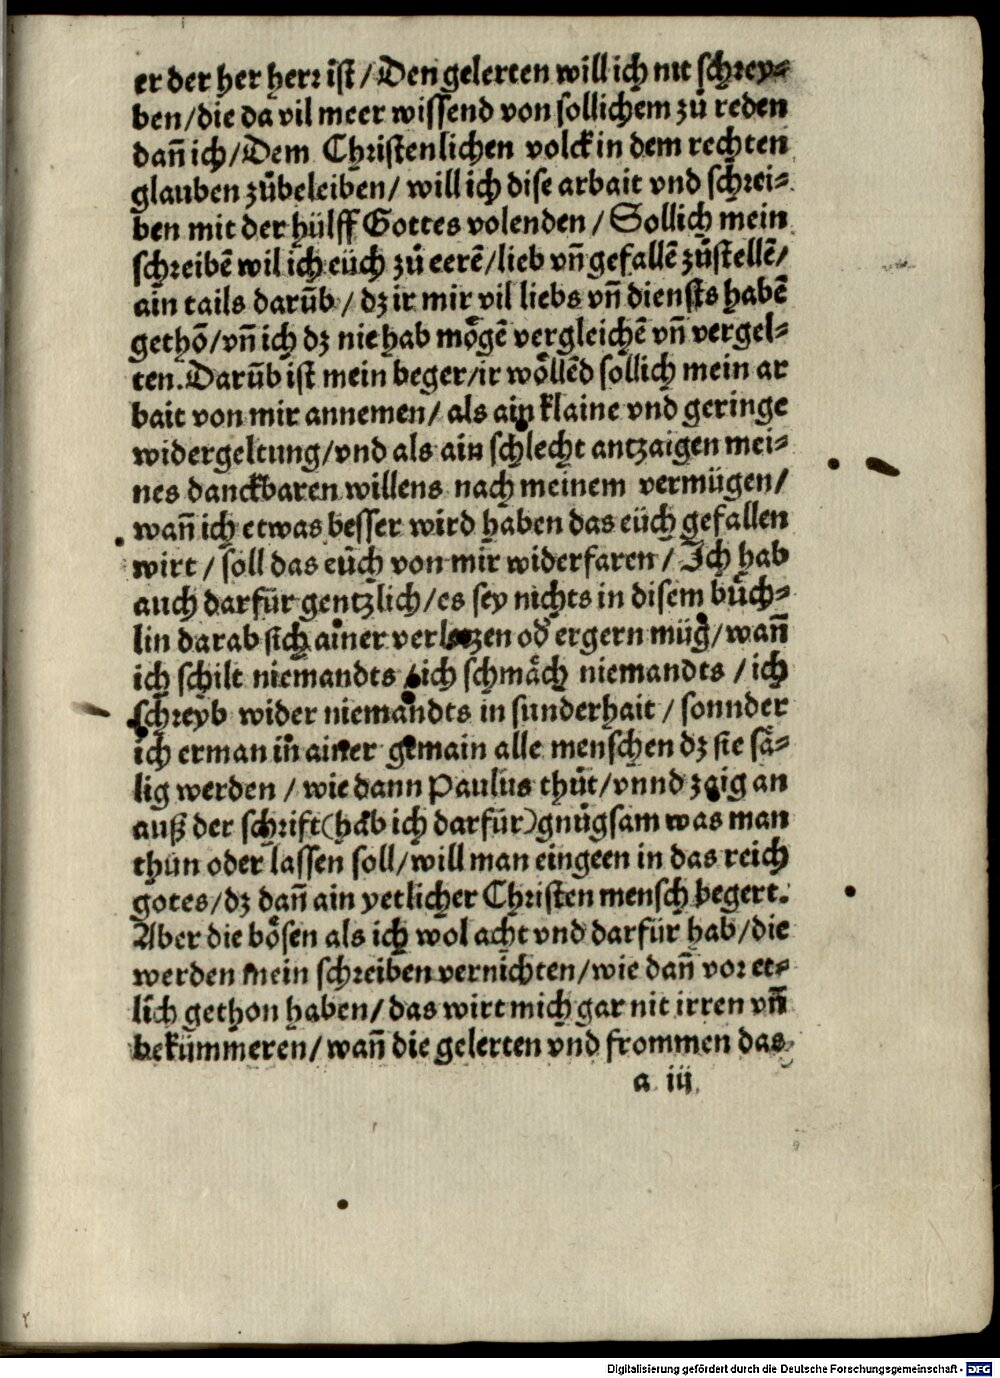 er der her herr ist / Den gelerten will ich nit schrey⸗
ben / die da vil meer wissend von sollichem zů reden
dañ ich / Dem Christenlichen volck in dem rechten
glauben zůbeleiben / will ich dise arbait vnd schrei⸗
ben mit der hülff Gottes volenden / Sollich mein
schreibẽ wil ich eüch zů eerẽ / lieb vñ gefallẽ zůstellẽ /
ain tails darũb / dz ir mir vil liebs vñ diensts habẽ
gethõ / vñ ich dz nie hab mögẽ vergleichẽ vñ vergel⸗
ten. Darũb ist mein beger / ir wöllẽd sollich mein ar
bait von mir annemen / als ain klaine vnd geringe
widergeltung / vnd als ain schlecht antzaigen mei⸗
nes danckbaren willens nach meinem vermügen /
wañ ich etwas besser wird haben das eüch gefallen
wirt / soll das eüch von mir widerfaren / Ich hab
auch darfür gentzlich / es sey nichts in disem büch⸗
lin darab sich ainer verletzen od ergern müg / wañ
ich schilt niemandts / ich schmäch niemandts / ich
schreyb wider niemandts in sunderhait / sonnder
ich erman in ainer gemain alle menschen dz sie sä⸗
lig werden / wie dann Paulus thůt / vnnd zaig an
auß der schrift (hab ich darfür) gnůgsam was man
thůn oder lassen soll / will man eingeen in das reich
gotes / dz dañ ain yetlicher Christen mensch begert.
Aber die bösen als ich wol acht vnd darfür hab / die
werden mein schreiben vernichten / wie dañ vor et⸗
lich gethon haben / das wirt mich gar nit irren vñ
bekümmeren / wañ die gelerten vnd frommen das
a iij
Digitalisierung gefördert durch die Deutsche Forschungsgemeinschaft - DFG